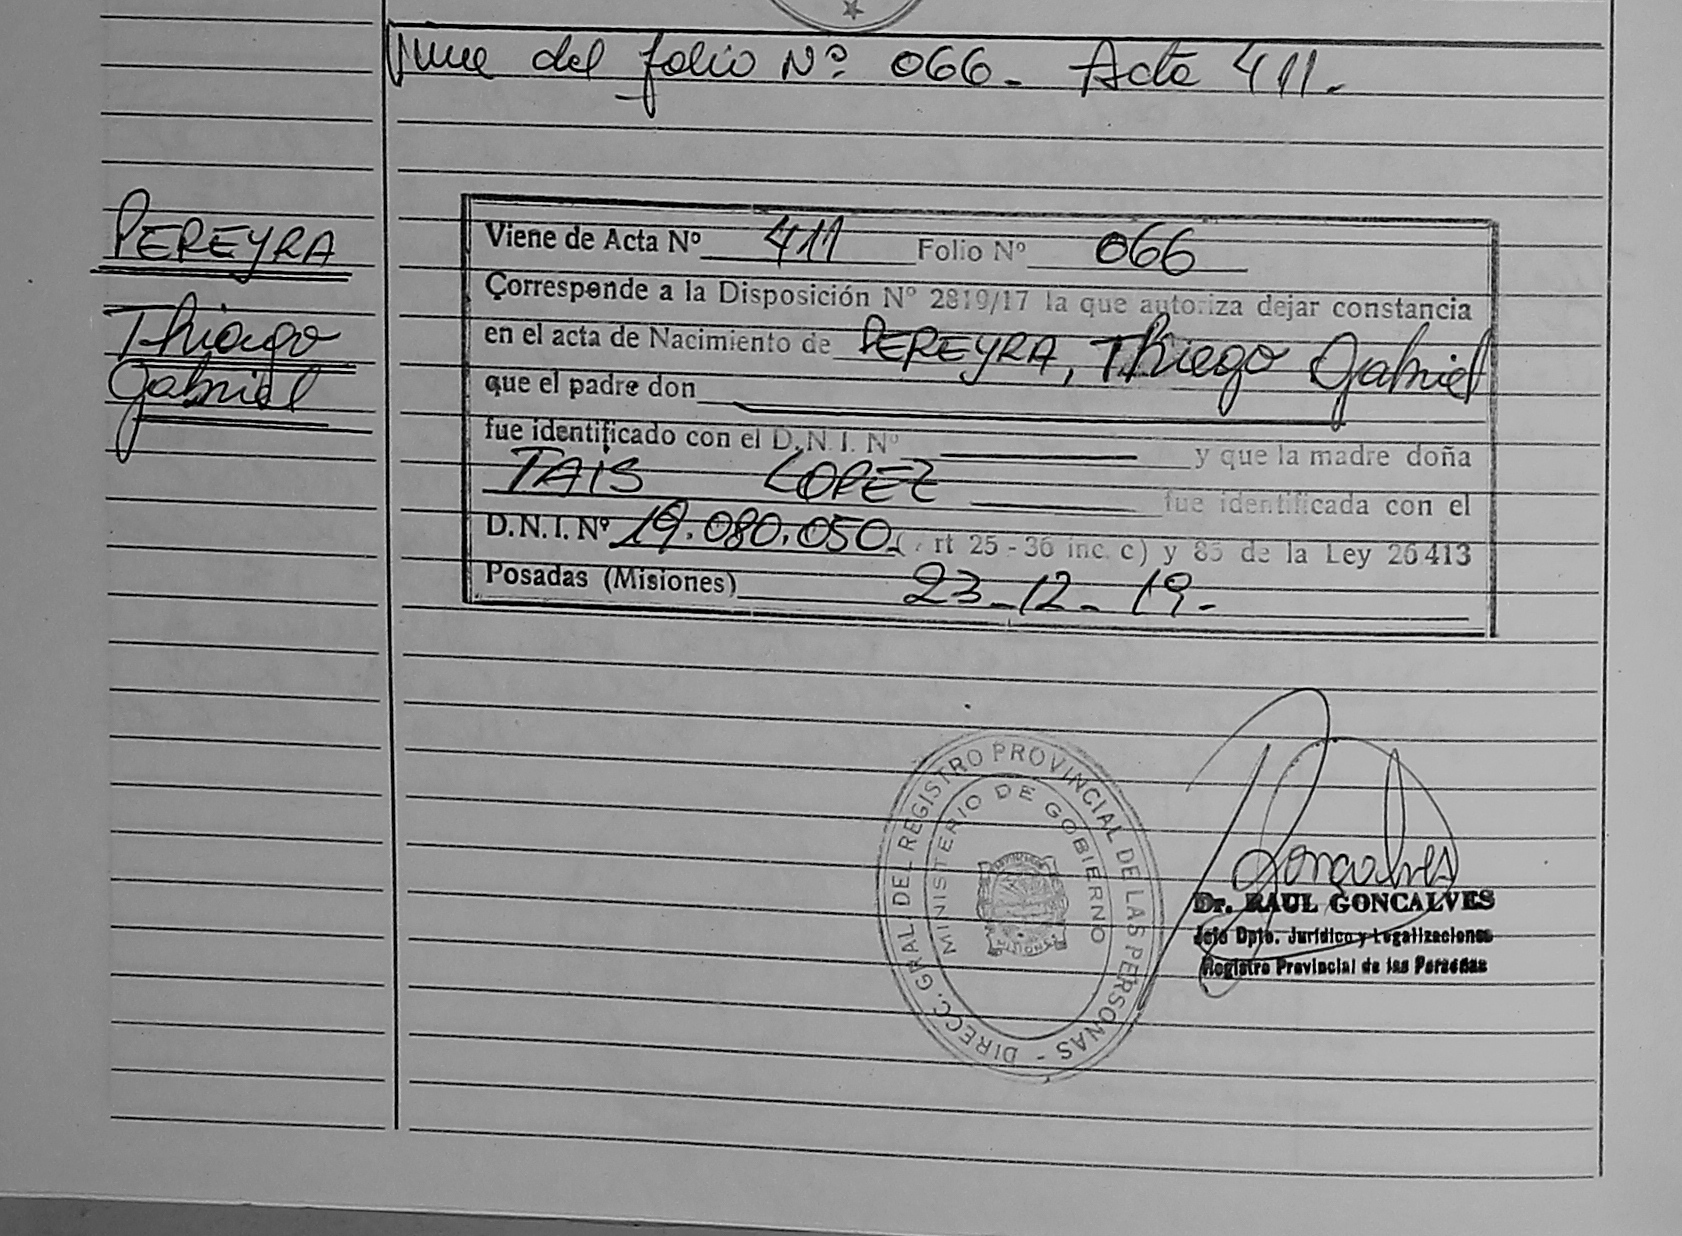 Viene del folio Nº 066. Acta 411.
PEREYRA
Thiago
Gabriel
Viene de Acta Nº 411 Folio Nº 066
Corresponde a la Disposición Nº 2819/17 la que autoriza dejar constancia
en el acta de Nacimiento de PEREYRA, Thiago Gabriel
que el padre don
fue identificado con el D.N.I. Nº y que la madre doña
TAIS LOPEZ fue identificada con el
D.N.I. Nº 19.080.050 (Art 25 - 36 inc. c) y 85 de la Ley 26413
Posadas (Misiones) 23-12-19.
DIRECC. GRAL. DEL REGISTRO PROVINCIAL DE LAS PERSONAS -
MINISTERIO DE GOBIERNO
Goncalves
Dr. RAUL GONCALVES
Jefe Dpto. Jurídico y Legalizaciones
Registro Provincial de las Personas